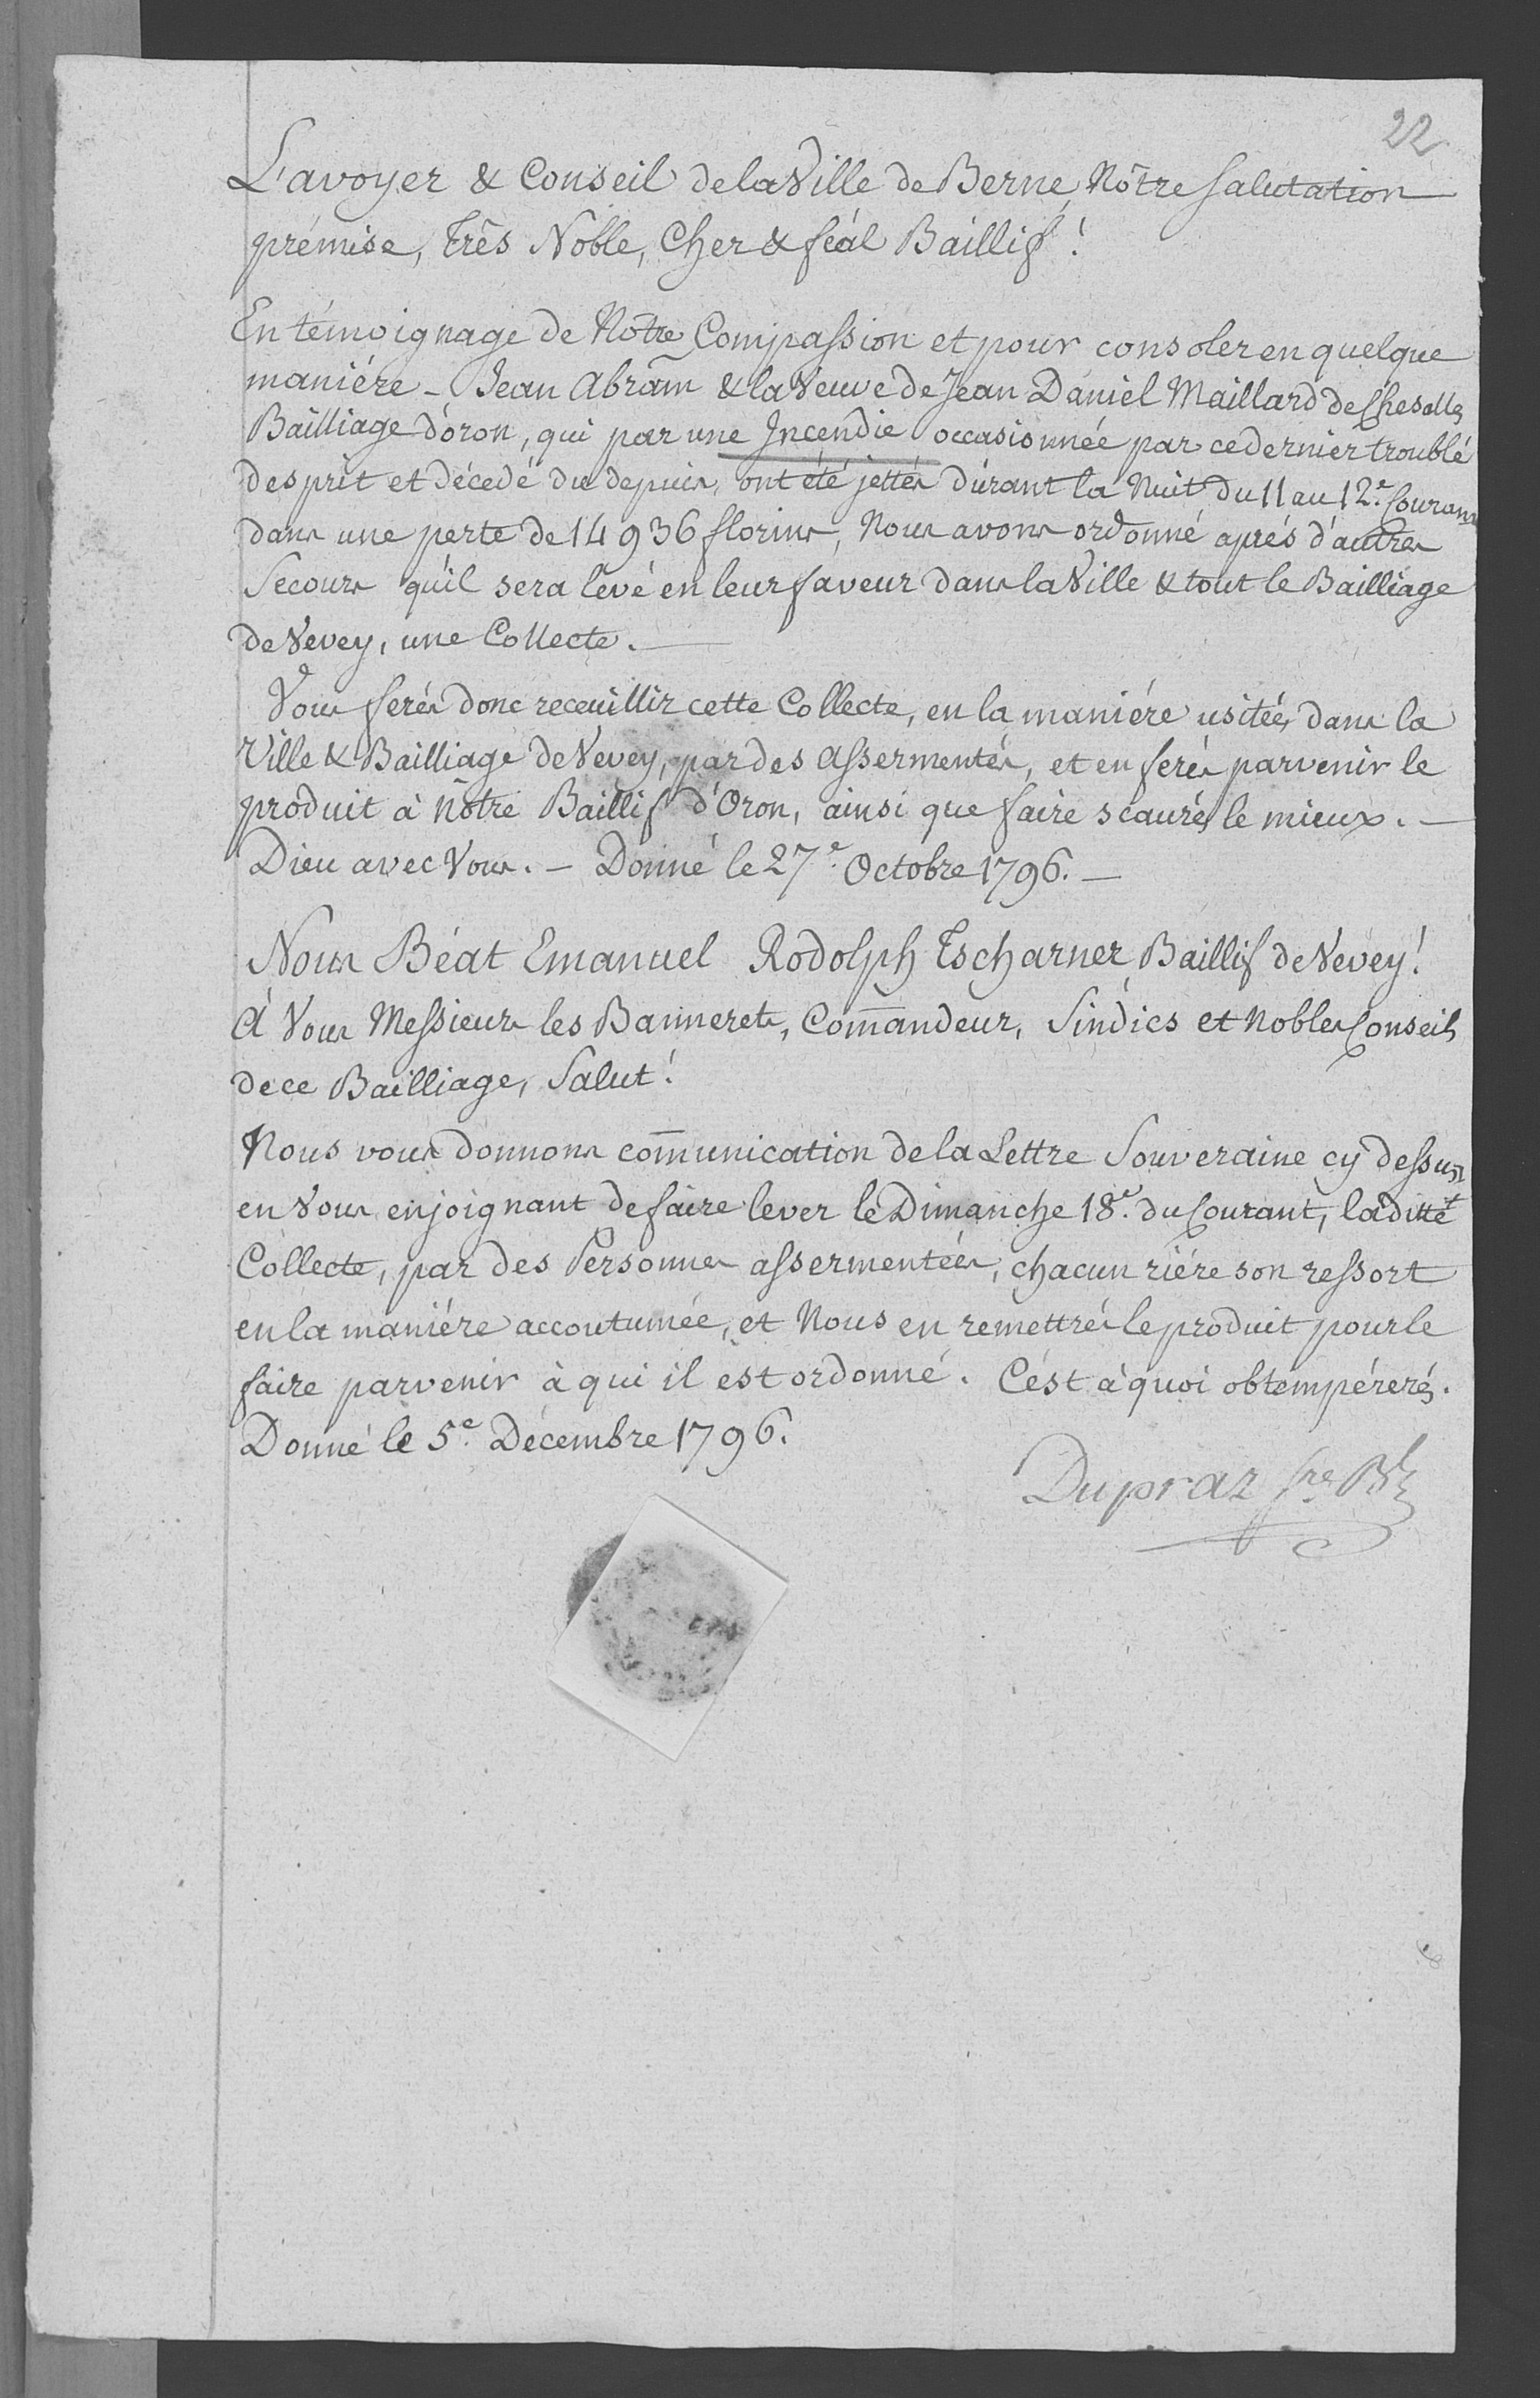 22
L'avoyer & Conseil de la Ville de Berne, Nôtre Salutation
prémise, Très Noble, Cher & féal Baillif!
En témoignage de Nôtre Compassion et pour consoler en quelque
maniére - Jean Abram & la Veuve de Jean Daniel Maillard de Chesalles
Bailliage d'oron, qui par une Incendie occasionnée par ce dernier troublé
desprit et décedé du depuis, ont été jettés durant la Nuit du 11 au 12.e Courant
dans une perte de 14936 florins, Nous avons ordonné aprés d'autres
Secours qu'il sera levé en leur faveur dans la Ville & tout le Bailliage
de Vevey, une Collecte.
Vous ferés donc receuillir cette Collecte, en la maniére usitée, dans la
Ville & Bailliage de Vevey, par des Assermentés, et en ferés parvenir le
produit à nôtre Baillif d'Oron, ainsi que faire scaurés le mieux. -
Dieu avec Vous. - Donné le 27.e Octobre 1796. -
Nous Béat Emanuel Rodolph Tscharner Baillif de Vevey!
A Vous Messieurs les Bannerets, Com̅andeur, Sindics et Nobles Conseils
de ce Bailliage, Salut!
Nous vous donnons com̅unication de la Lettre Souveraine cy dessus
en Vous enjoignant de faire lever le Dimanche 18.e du Courant, laditte
Collecte, par des Personnes assermentées, chacun riére son ressort
en la maniére accoutumée, et Nous en remettrés le produit pour le
faire parvenir à qui il est ordonné. C'est à quoi obtempérerés.
Donné le 5.e Décembre 1796.
Dupraz